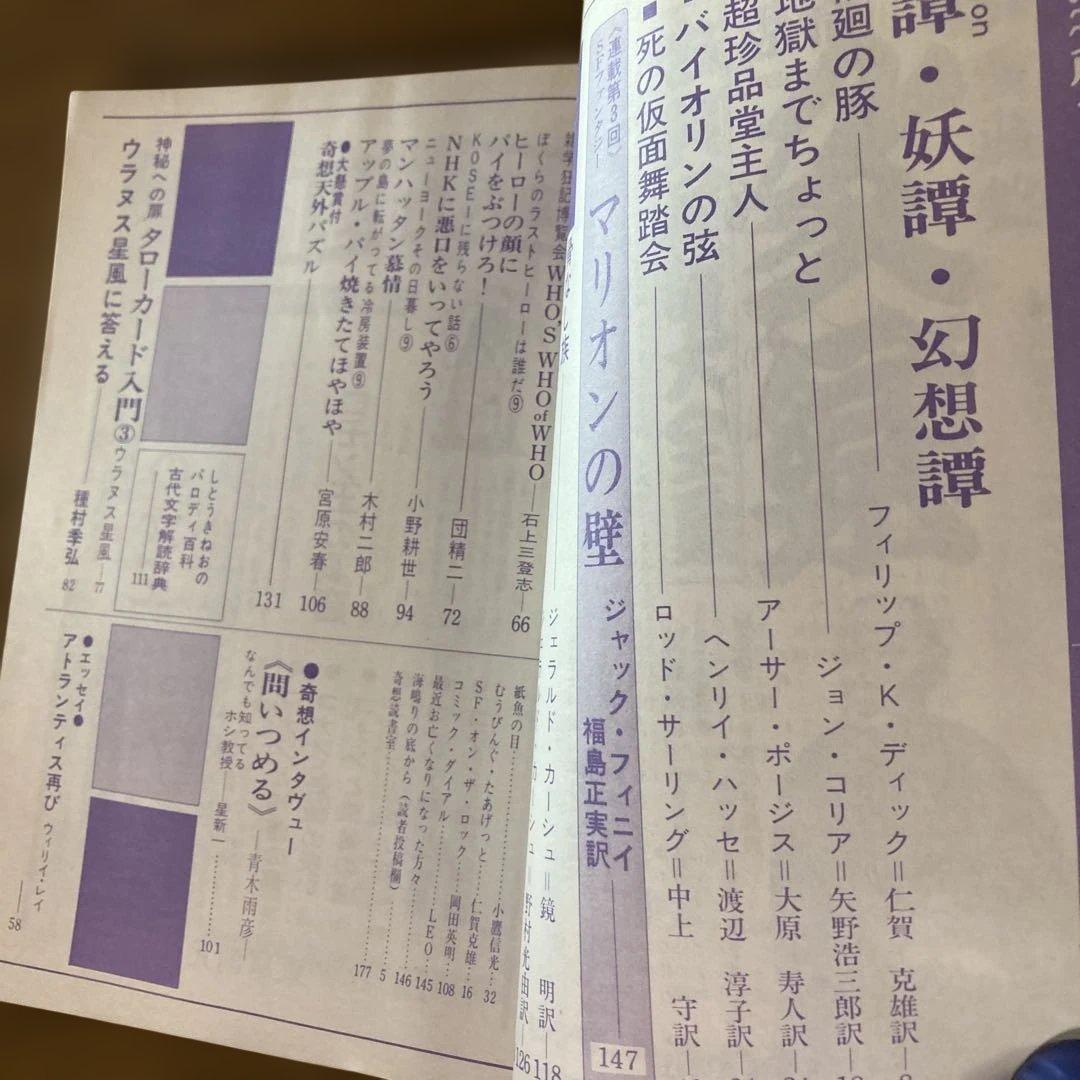 譚・妖譚・幻想譚
on
廻の豚
フィリップ・K・ディック＝仁賀 克雄訳
地獄までちょっと
ジョン・コリア＝矢野浩三郎訳
超珍品堂主人
アーサー・ポージス＝大原 寿人訳
バイオリンの弦
ヘンリイ・ハッセ＝渡辺 淳子訳
■死の仮面舞踏会
ロッド・サーリング＝中上 守訳
《連載第3回》
SFファンタジー
マリオンの壁
ジャック・フィニイ
福島正実訳
147
ジェラルド・カーシュ＝鏡 明訳―118
野村光由訳―126
雑学狂記博覧会 WHO'S WHO of WHO
石上三登志―66
ぼくらのラストヒーローは誰だ⑨
ヒーローの顔に
パイをぶつけろ!
団精二―72
KOSEIに残らない話⑥
NHKに悪口をいってやろう
小野耕世―94
ニューヨークその日暮し⑨
マンハッタン慕情
木村二郎―88
夢の島に転がってる冷房装置⑨
アップル・パイ焼きたてほやほや
宮原安春―106
●大懸賞付
奇想天外パズル
131
しとうきねおの
パロディ百科
古代文字解読辞典
111
神秘への扉 タローカード入門③ウラヌス星風―77
ウラヌス星風に答える
種村季弘 82
紙魚の目
小鷹信光…32
むうびんぐ・たあげっと
仁賀克雄…16
SF・オン・ザ・ロック
岡田英明…108
コミック・ダイアル
LEO…145
最近お亡くなりになった方々
146
海鳴りの底から(読者投稿欄)
5
奇想読書室
177
●奇想インタヴュー
《問いつめる》
―青木雨彦―
なんでも知ってる
ホシ教授
星新一
101
●エッセイ●
アトランティス再び
ウィリイ・レイ
58